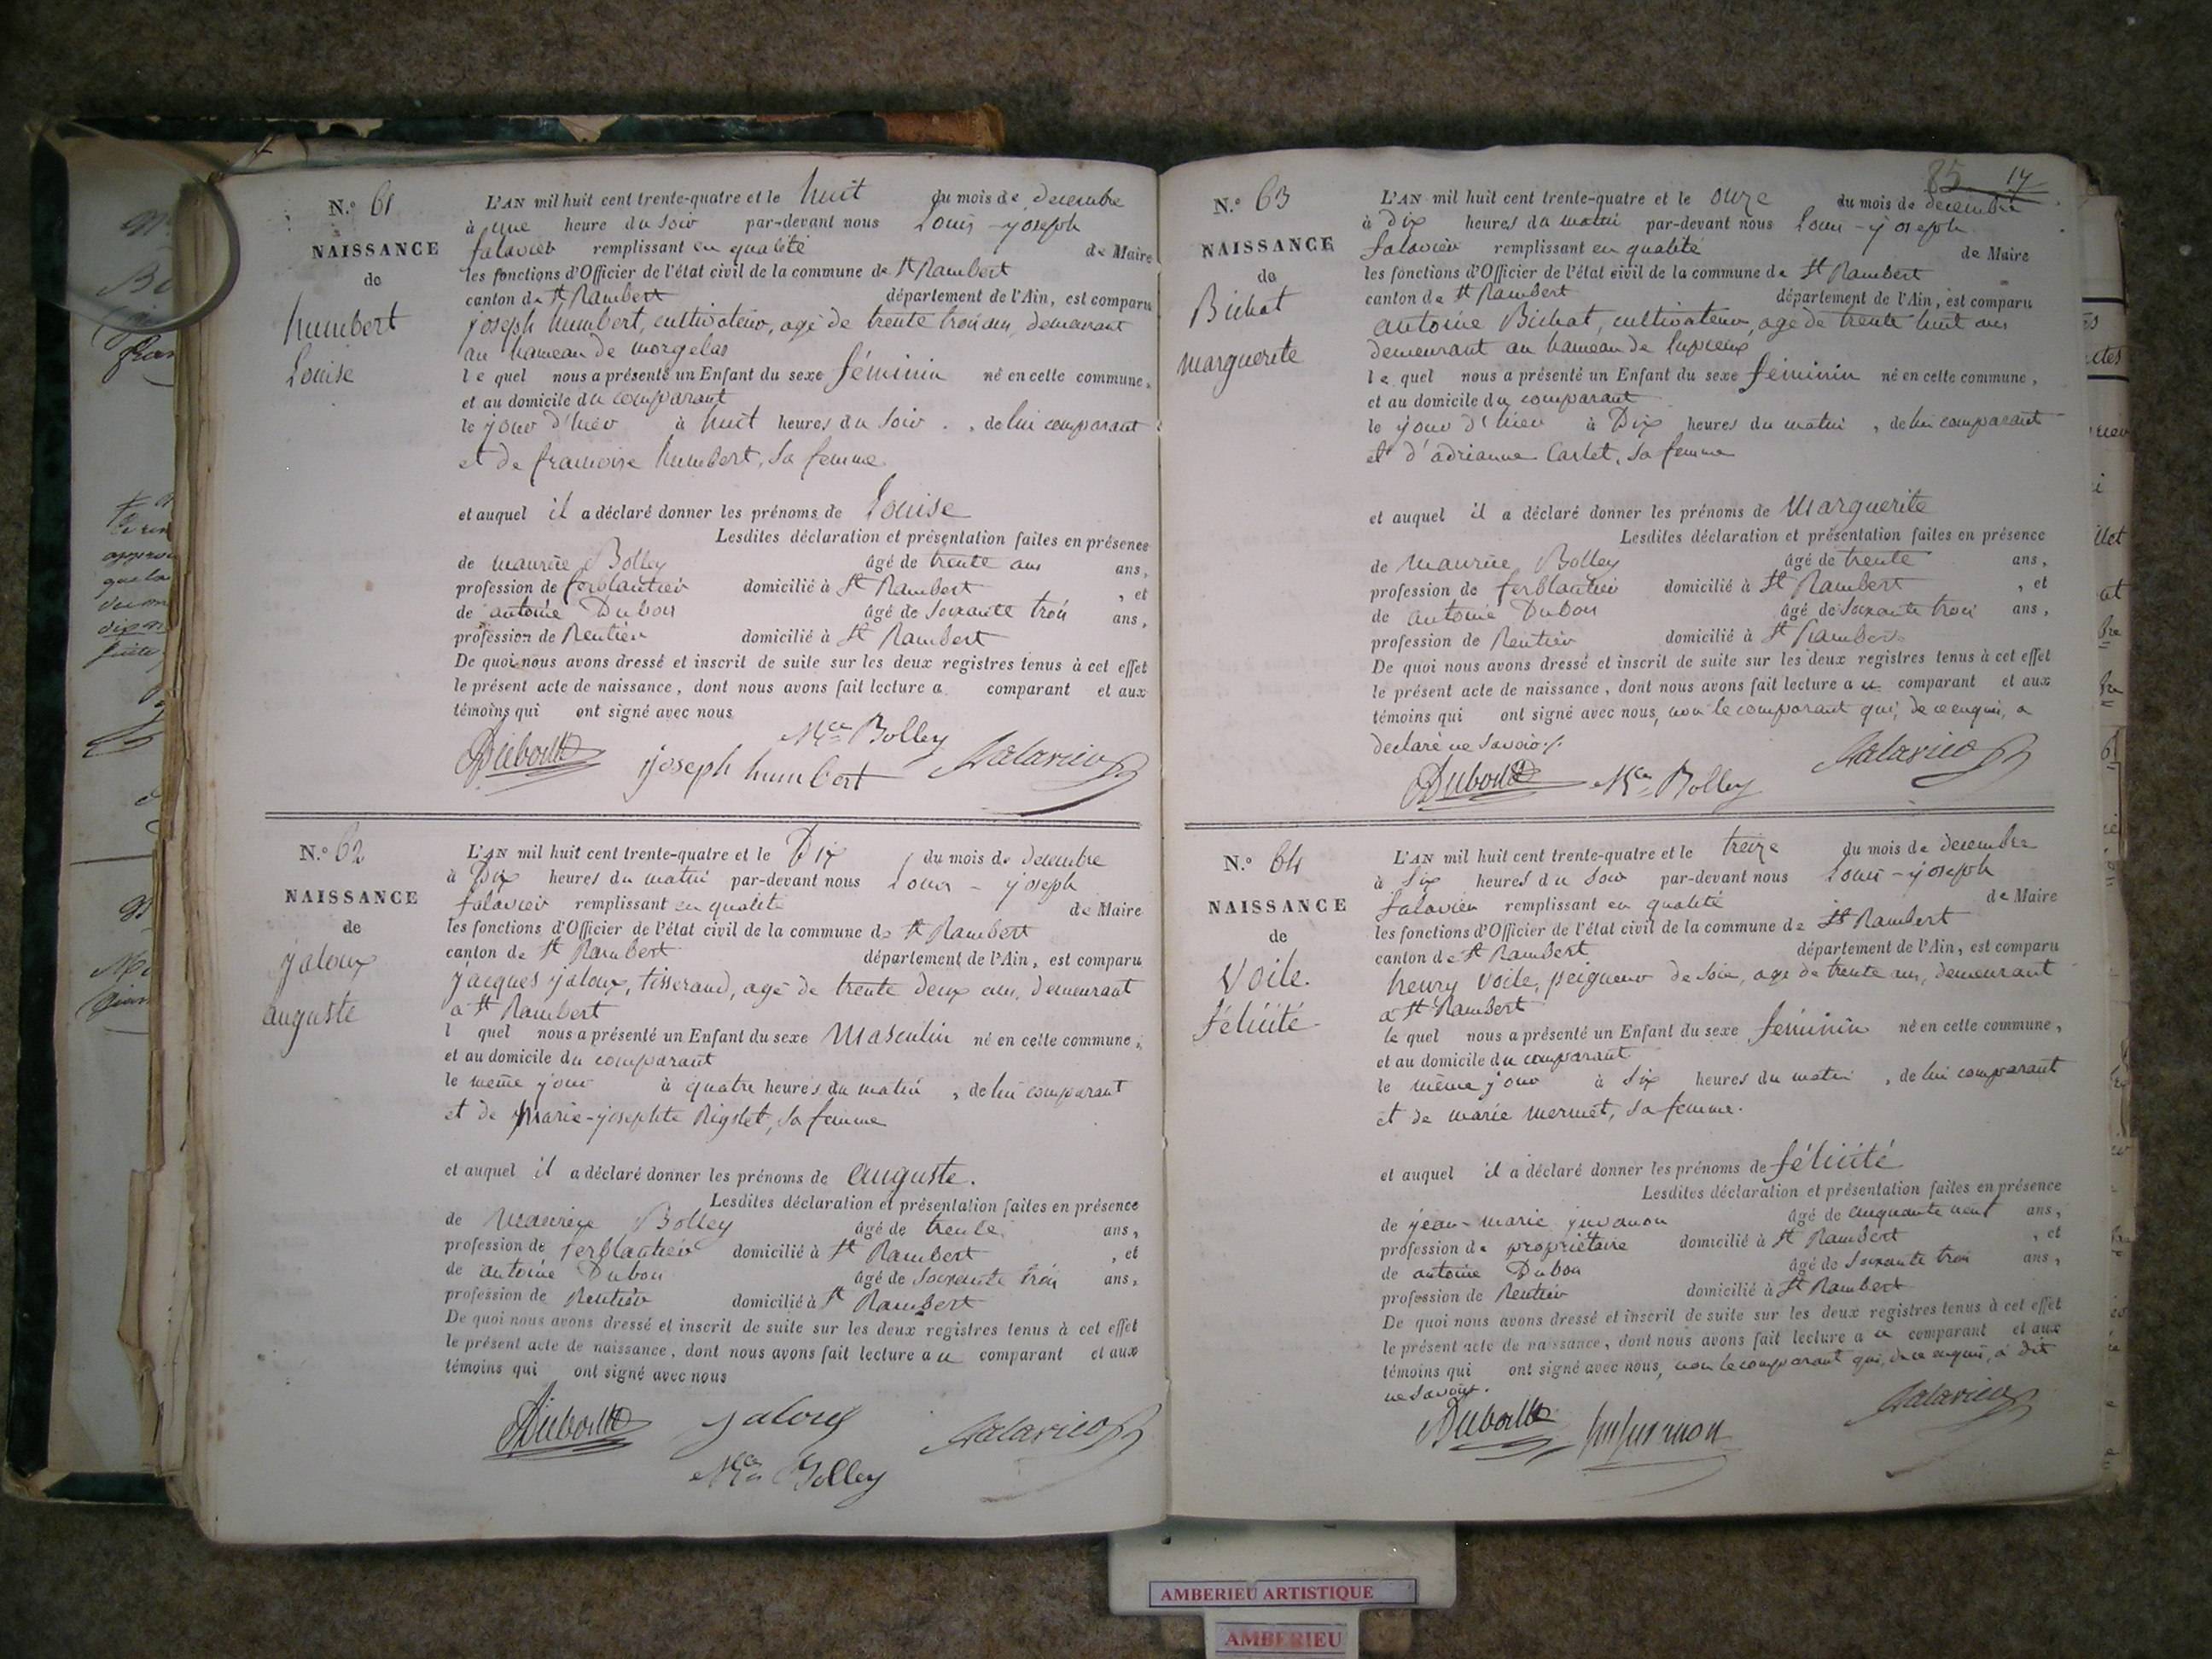 N.° 61
NAISSANCE
de
humbert
Louise
L'AN mil huit cent trente-quatre et le huit du mois de decembre
à une heure du soir par-devant nous Louis-joseph
falavier remplissant en qualité de Maire
les fonctions d'Officier de l'état civil de la commune de St Rambert
canton de St Rambert département de l'Ain, est comparu
joseph humbert, cultivateur, agé de trente trois ans, demeurant
au hameau de morgelas
le quel nous a présenté un Enfant du sexe féminin né en cette commune,
et au domicile du comparant
le jour d'hier à huit heures du soir, de lui comparant
et de francoise humbert, sa femme
et auquel il a déclaré donner les prénoms de Louise
Lesdites déclaration et présentation faites en présence
de maurice Bolley âgé de trente ans ans,
profession de ferblantier domicilié à St Rambert, et
de antoine Dubou âgé de soixante trois ans,
profession de Rentier domicilié à St Rambert
De quoi nous avons dressé et inscrit de suite sur les deux registres tenus à cet effet
le présent acte de naissance, dont nous avons fait lecture a comparant et aux
témoins qui ont signé avec nous
Mce Bolley
joseph humbert
N.° 62
NAISSANCE
de
jaloux
auguste
L'AN mil huit cent trente-quatre et le Dix du mois de decembre
à Dix heures du matin par-devant nous Louis-joseph
falavier remplissant en qualité de Maire
les fonctions d'Officier de l'état civil de la commune de St Rambert
canton de St Rambert département de l'Ain, est comparu
jacques jaloux, tisserand, agé de trente deux ans, demeurant
à St Rambert
l quel nous a présenté un Enfant du sexe Masculin né en cette commune,
et au domicile du comparant
le même jour à quatre heures du matin, de lui comparant
et de marie-josephte, sa femme
et auquel il a déclaré donner les prénoms de auguste.
Lesdites déclaration et présentation faites en présence
de maurice Bolley âgé de trente ans,
profession de ferblantier domicilié à St Rambert, et
de antoine Dubou âgé de soixante trois ans,
profession de Rentier domicilié à St Rambert
De quoi nous avons dressé et inscrit de suite sur les deux registres tenus à cet effet
le présent acte de naissance, dont nous avons fait lecture au comparant et aux
témoins qui ont signé avec nous
jaloux
Mce Bolley
85 17
N.° 63
NAISSANCE
de
Bichat
marguerite
L'AN mil huit cent trente-quatre et le onze du mois de decembre
à Dix heures du matin par-devant nous Louis-joseph
falavier remplissant en qualité de Maire
les fonctions d'Officier de l'état civil de la commune de St Rambert
canton de St Rambert département de l'Ain, est comparu
antoine Bichat, cultivateur, agé de trente huit ans
demeurant au hameau de lupieux
le quel nous a présenté un Enfant du sexe féminin né en cette commune,
et au domicile du comparant
le jour d'hier à Dix heures du matin, de lui comparant
et d'adrianne Carlet, sa femme
et auquel il a déclaré donner les prénoms de Marguerite
Lesdites déclaration et présentation faites en présence
de maurice Bolley âgé de trente ans,
profession de ferblantier domicilié à St Rambert, et
de antoine Dubou âgé de soixante trois ans,
profession de Rentier domicilié à St Rambert
De quoi nous avons dressé et inscrit de suite sur les deux registres tenus à cet effet
le présent acte de naissance, dont nous avons fait lecture au comparant et aux
témoins qui ont signé avec nous, non le comparant qui, de ce enquis, a
declaré ne savoir./.
Mce Bolley
N.° 64
NAISSANCE
de
Voile.
félicité
L'AN mil huit cent trente-quatre et le treize du mois de decembre
à Six heures du soir par-devant nous Louis-joseph
falavier remplissant en qualité de Maire
les fonctions d'Officier de l'état civil de la commune de St Rambert
canton de St Rambert département de l'Ain, est comparu
henry Voile, peigneur de soie, agé de trente ans, demeurant
à St Rambert
le quel nous a présenté un Enfant du sexe féminin né en cette commune,
et au domicile du comparant
le même jour à Six heures du matin, de lui comparant
et de marie mermet, sa femme.
et auquel il a déclaré donner les prénoms de félicité
Lesdites déclaration et présentation faites en présence
de jean-marie juvanon âgé de cinquante neuf ans,
profession de propriétaire domicilié à St Rambert, et
de antoine Dubou âgé de soixante trois ans,
profession de Rentier domicilié à St Rambert
De quoi nous avons dressé et inscrit de suite sur les deux registres tenus à cet effet
le présent acte de naissance, dont nous avons fait lecture au comparant et aux
témoins qui ont signé avec nous, non le comparant qui, de ce enquis, a dit
ne savoir.
AMBERIEU ARTISTIQUE
AMBERIEU